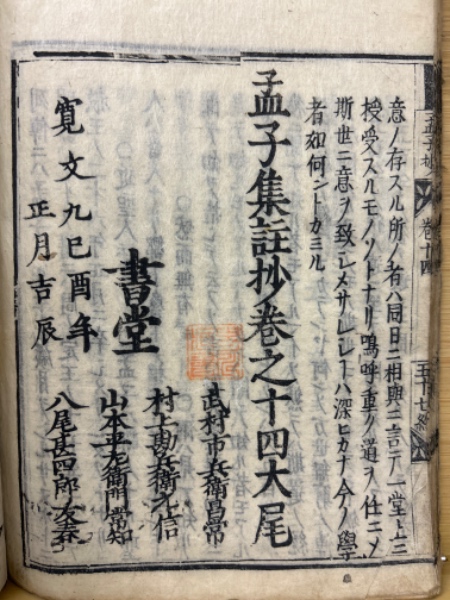 意ノ存スル所ノ者ハ同日ニ相與ニ言テ一堂ノ上ニ
授受スルモノヽソトナリ嗚呼重ク道ヲ仕ニソ
斯世ニ意ヲ致シメサレシトハ深ヒカナ今ノ學
者如何ントカミル
孟子集註抄卷之十四大尾
武村市兵衛昌常
村上勘兵衛元信
山本平左衛門常知
八尾甚四郎友春
書堂
寛文九己酉年
正月吉辰
孟子抄
卷十四
五十七終